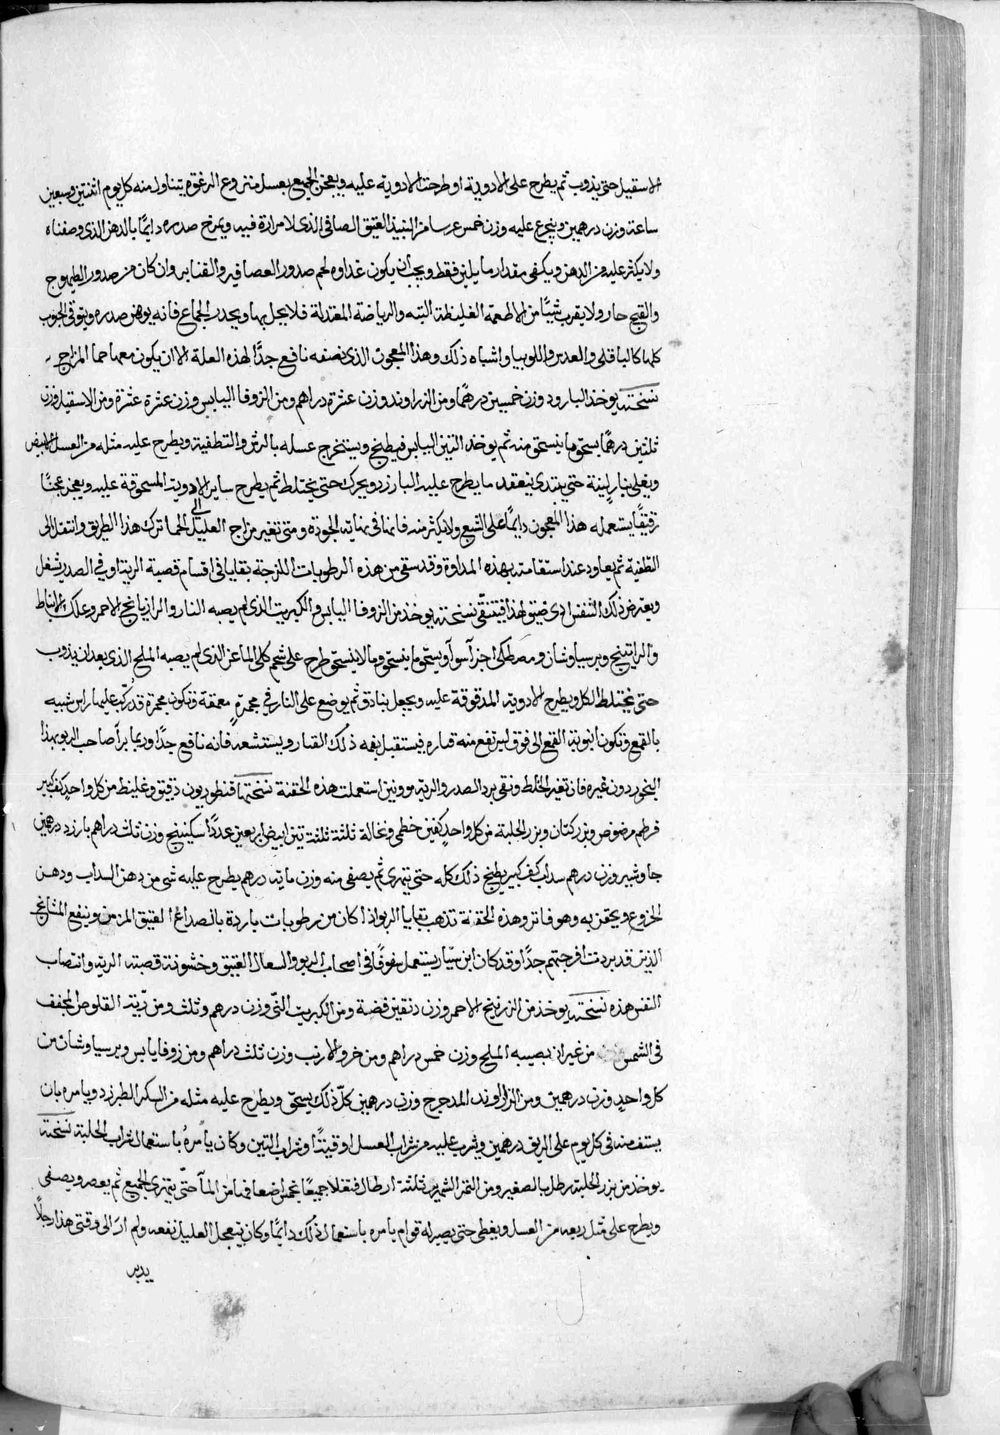 الاسقيل حتى يذوب ثم يطرح على الادوية او طرحت الادوية عليه ويعجن الجميع بعسل منزوع الرغوة يتناول منه كل يوم اثنتين وسبعين
ساعة وزن درهمين ويتجرع عليه وزن خمس عر سا من النبيذ العتيق الصافي الذي لا مرارة فيه ويمرخ صدره دايمًا بالدهن الذي وصفناه
ولا يكثر عليه من الدهن ويكفى مقدار ما يلين فقط ويجب ان يكون غداوه لحم صدور العصافير والقنابر وان كان من صدور الطيهوج
والقبج جاز ولا يقرب شيًا من الاطعمة الغليظة البته والرياضة المعتدلة فلا يخل بها ويحذر الجماع فانه يوهن صدره ويتوقى الحبوب
كلها كالباقلى والعدس واللوبيا واشباه ذلك وهذا المعجون الذي نصفه نافع جدًا لهذه العلة الا ان يكون معها حما المزاج
نسخته يوخذ البارود وزن خمسين درهمًا ومن الزراوند وزن عشرة دراهم ومن الزوفا اليابس وزن عشرة عشرة ومن الاسقيل وزن
ثلثين درهمًا يسحق ما ينسحق منه ثم يوخذ التين اليابس فيطبخ ويستخرج عسله بالرش والتطفية ويطرح عليه مثله من العسل الابيض
ويغلى بنار لينة حتى يبتدى ينعقد ما يطرح عليه البارزد ويحرك حتى يختلط ثم يطرح ساير الادوية المسحوقة عليه ويعجن عجنًا
رقيقًا يستعمله هذا المعجون دايمًا على الشبع ولا يكثر منه فانها في نهاية الجودة ومتى تغير مزاج العليل الى الحما ترك هذا الطريق وانتقل الى
التطفية ثم يعاود عند استقامته بهذه المداواة وقد سقى من هذه الرطوبات اللزجة بقايا في اقسام قصبة الرية او في الصدر يشغل
ويعترض ذلك النفس اى ضيق لهذا فيتنقى نسخته يوخذ من الزوفا اليابس والكبريت الذي لم يصبه النار والرازيانج الاحمر وعلك الانباط
والراتينج وبرسياوشان ومصطكى اجزا سوا ويسحق ما ينسحق وما لا ينسحق طرح على شحم كلى الماعز الذي لم يصبه الملح الذي بعد ان يذوب
حتى يختلط الكل ويطرح الادوية المدقوقة عليه ويجعل بنادق ثم يوضع على النار في مجمرةٍ معمقة وتكون مجمرة قد ركب عليها راس شبيه
بالقمع وتكون انبوبة القمع الى فوق ليرتفع منه قتاره فيستقبل بفه ذلك القتار ويستنشقه فانه نافع جدًا وربما برأ صاحب الربو بهذا
البخور دون غيره فان تغير الخلط ونقى برد الصدر والرية استعملت هذه الحقنة نسختها قنطوريون دقيق وغليظ من كل واحدٍ كف كبير
قرطم مرضوض وبزر كتان وبزر الحلبة من كل واحدٍ كفين خطمى ونخالة ثلثة ثلثة تين ابيض اربعين عددًا سكبينج وزن ثلث دراهم بارزد درهمين
جاوشير وزن درهم سداب كف كبير يطبخ ذلك كله حتى يتهرى ثم يصفى منه وزن ماية درهم يطرح عليه شى من دهن السداب ودهن
الخروع ويحقن به وهو فاتر وهذه الحقنة تذهب بقايا الربو اذا كان من رطوبات باردة بالصداغ العتيق المزمن وينفع المشايخ
الذين قد بردت امزجتهم جدًا وقد كان ابن سيار يستعمل سفوفًا في اصحاب الربو والسعال العتيق وخشونة قصبة الرية وانتصاب
النفس هذه نسخته يوخذ من الزرنيخ الاحمر وزن دنقين فضة ومن الكبريت النى وزن درهم وثلث ومن زية القلوص المجفف
في الشمس من غير ان يصيبه الملح وزن خمس دراهم ومن خرو الارنب وزن ثلث دراهم ومن زوفا يابس وبرسياوشان من
كل واحدٍ وزن درهمين ومن الزراوند المدحرج وزن درهمين كل ذلك يسحق ويطرح عليه مثله من السكر الطبرزد ويامره بان
يستف منه في كل يوم على الريق درهمين ويشرب عليه من شراب العسل اوقيتًا وشراب التين وكان يأمره باستعمال شراب الحلبة نسخته
يوخذ من بزر الحلبة رطل بالصغير ومن التمر الشهريز ثلثة ارطال فتغلا جميعًا بخمس اضعافها من المآ حتى يتهرى الجميع ثم يعصر ويصفى
ويطرح على مثل ربعه من العسل ويغطى حتى يصير له قوام يامره باستعمال ذلك دايمًا وكان يتعجل العليل نفعه ولم ار الى وقتى هذا رجلًا
يدبر